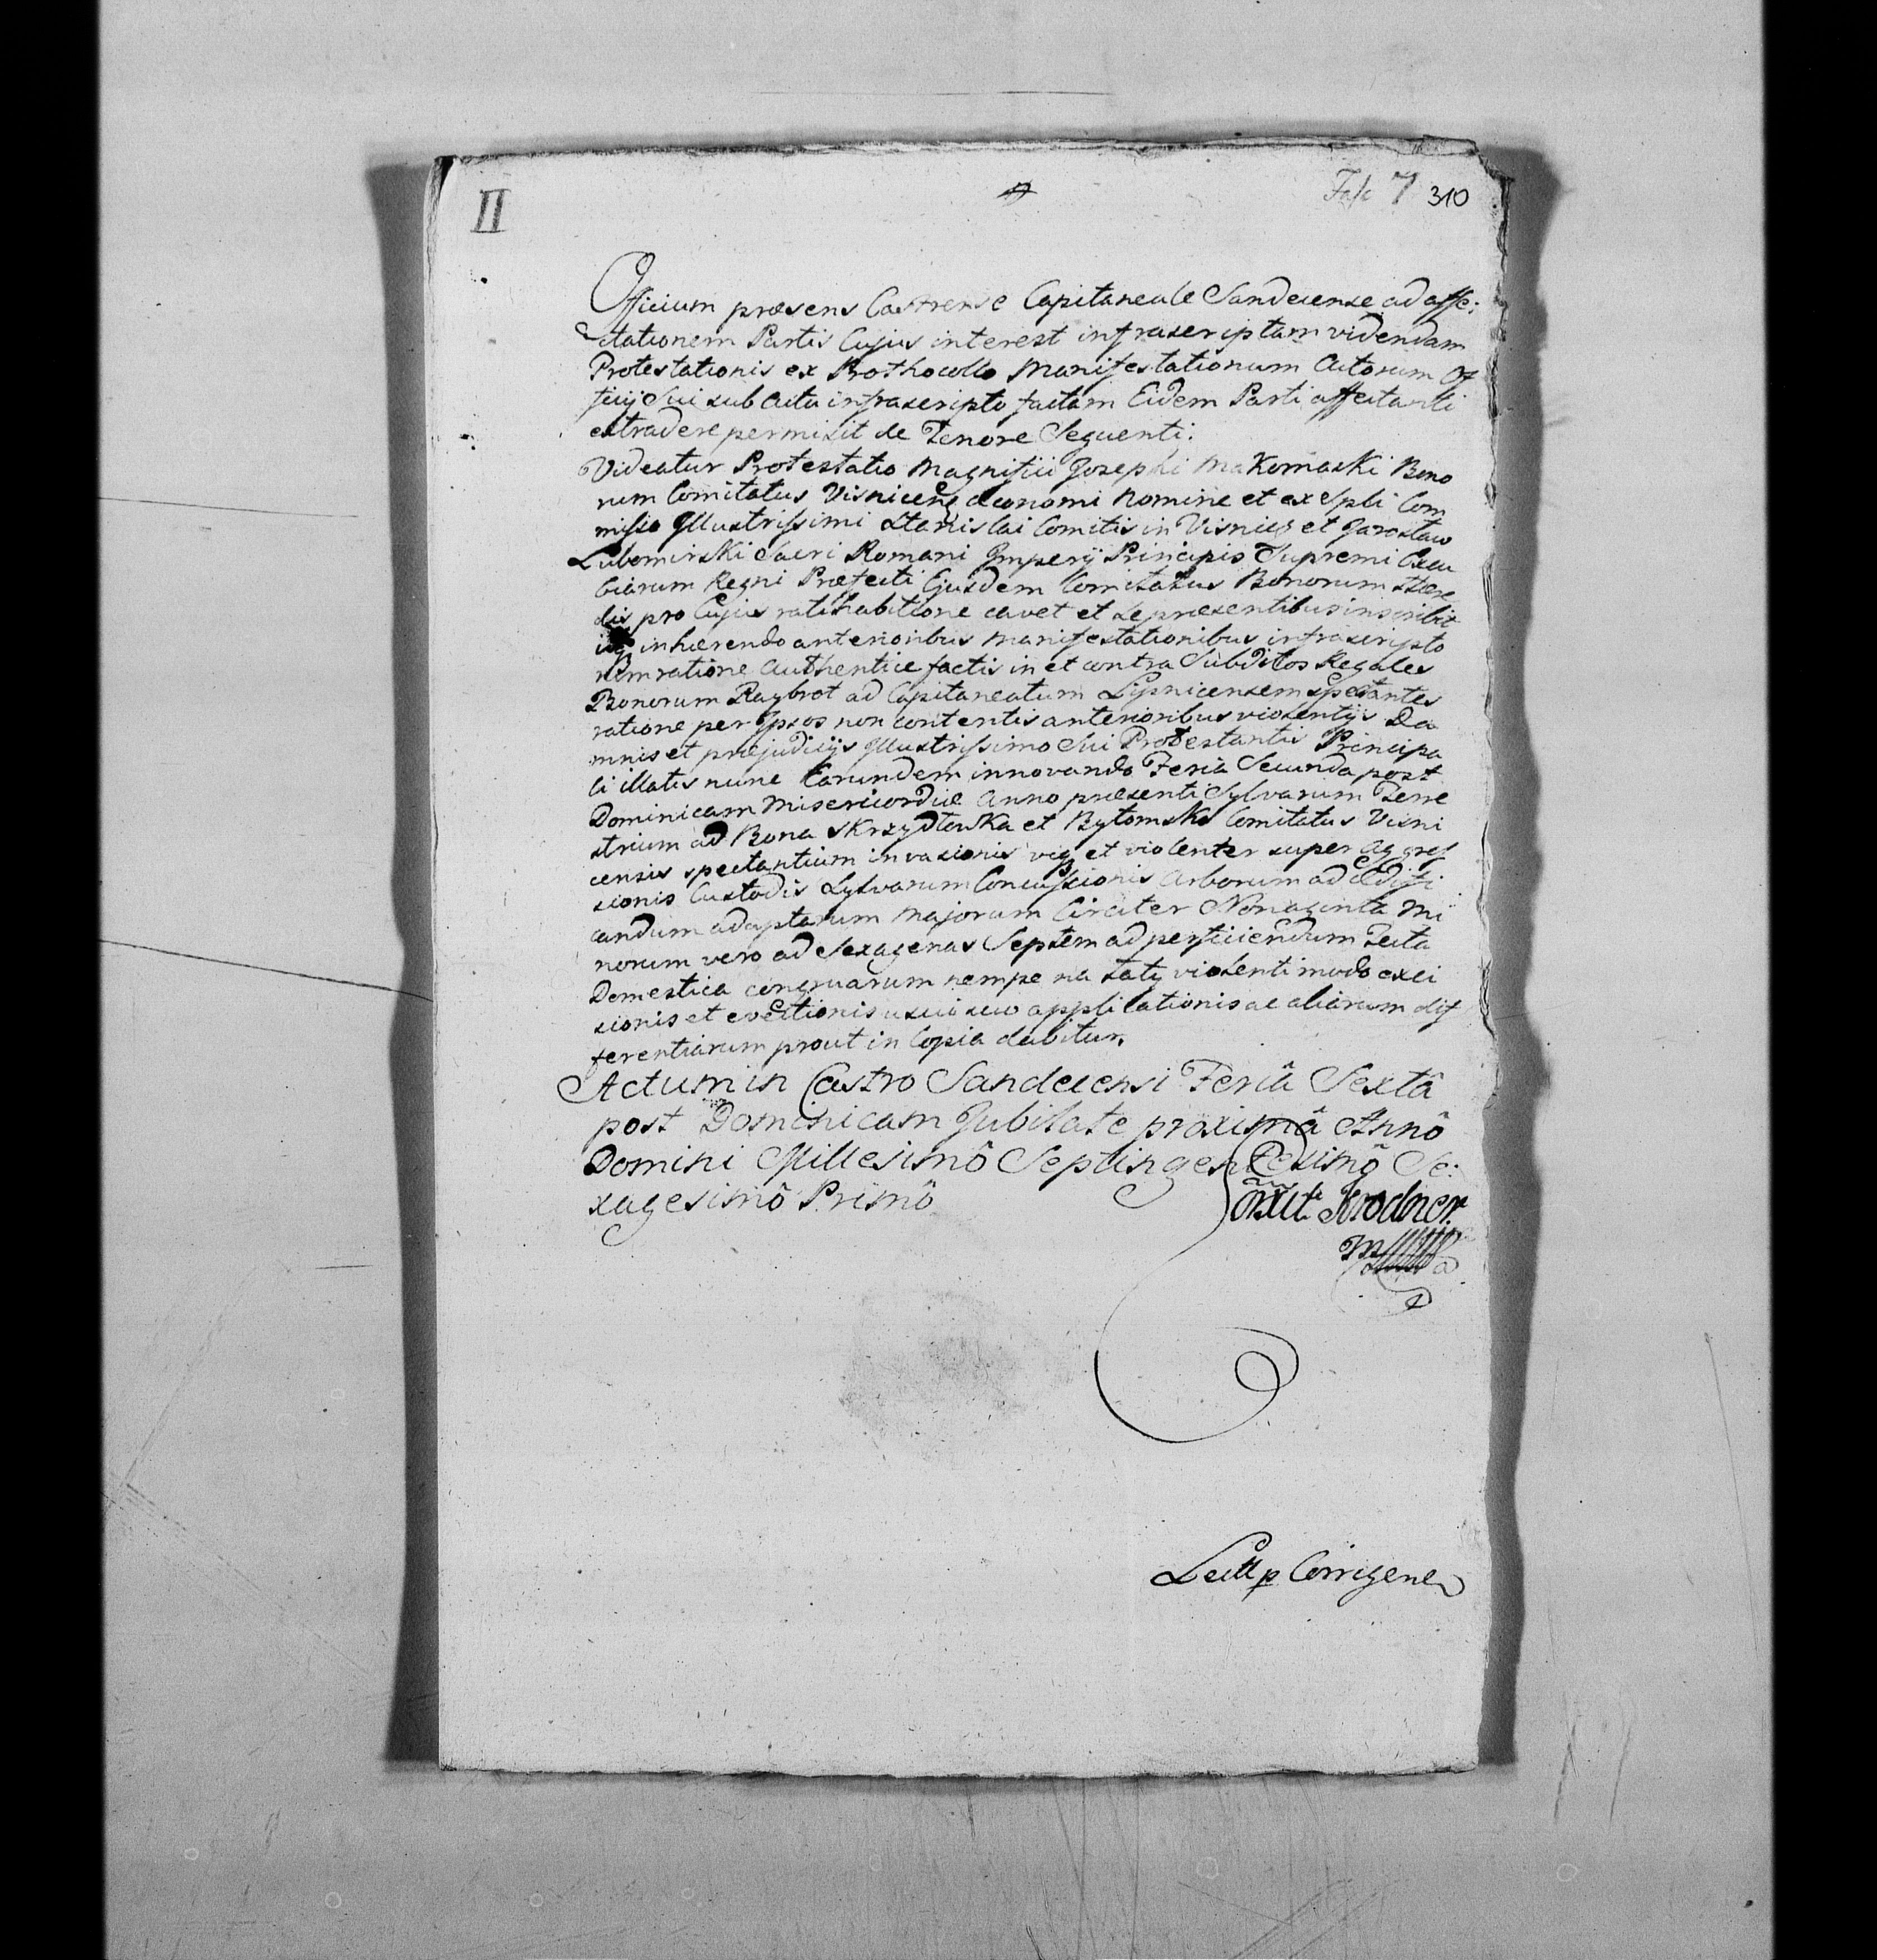 II
Fasc 7 310
Officium præsens Castrense Capitaneale Sandecense ad affe:
ctationem Partis Cujus interest infrascriptam videndam
Protestationis ex Prothocollo Manifestationum Actorum Of
ficij Sui sub Actu infrascripto factam Eidem Parti affectanti
extradere permisit de Tenore Sequenti:
Videatur Protestatio Magnifici Josephi Makomaski Bono
rum Comitatus Visnicens œconomi Nomine et ex Espli Com
misso Illustrissimi Stanislai Comitis in Visnicz et Jarosław
Lubomirski Sacri Romani Imperij Principis Supremi Excu
biarum Regni Præfecti Ejusdem Comitatus Bonorum Hære
dis pro Cujus ratihabitione cavet et se præsentibus inscribit
inhærendo anterioribus Manifestationibus infrascripto
rum ratione Authentice factis in et contra Subditos Regales
Bonorum Raybrot ad Capitaneatum Lipnicensem spectantes
ratione per Ipsos non contentis anterioribus violentijs Da
mnis et præjudicijs Illustrissimo Sui Protestantis Principa
li illatis nunc Earundem innovando Feria Secunda post
Dominicam Misericordiæ Anno præsenti Sylvarum Terre
strium ad Bona Skrzydlowka et Bytomsko Comitatus Visni
censis spectantium invasionis viq et violenter super Aggres
sionis Custodis Sylvarum Concussionis Arborum ad ædifi
candum adaptarum Majorum Circiter Nonaginta Mi
norum vero ad Sexagenas Septem ad perficiendum Tecta
Domestica congruarum nempe na Łaty violenti modo exci
sionis et evectionis usui suo applicationis ac aliarum dif
ferentiarum prout in Copia dabitur.
Actum in Castro Sandecensi Feriâ Sextâ
post Dominicam Jubilate proximâ Annô
Domini Millesimô Septingentesimô Se:
xagesimô Primô
Lect p Corrigene